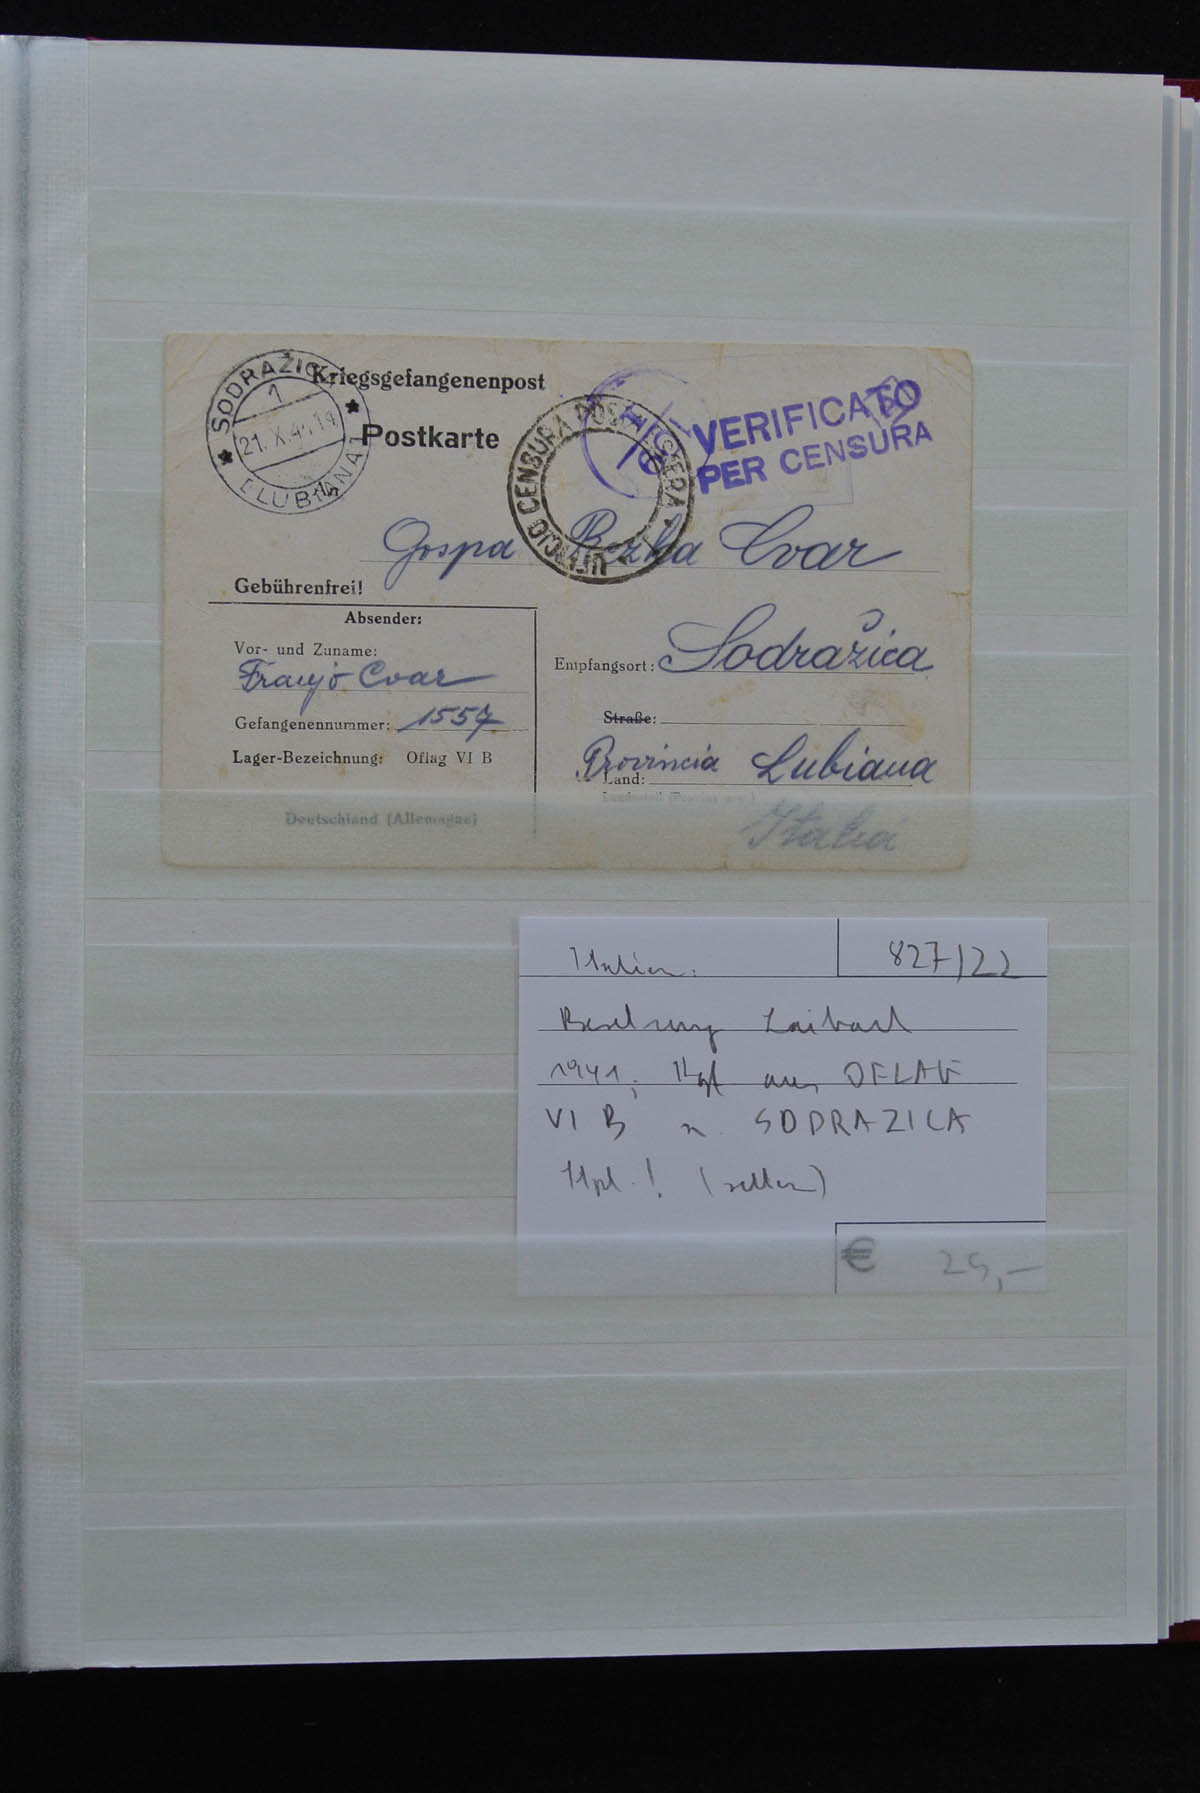 SODRAŽICA
1
21.X.41.19
(LUBIANA)
Kriegsgefangenenpost
Postkarte
UFFICIO CENSURA POSTA ESTERA
VERIFICATO
PER CENSURA
Gospa Rezka Cvar
Gebührenfrei!
Absender:
Vor- und Zuname:
Franjo Cvar
Gefangenennummer: 1557
Lager-Bezeichnung: Oflag VI B
Deutschland (Allemagne)
Empfangsort: Sodražica
Straße:
Provincia Lubiana
Land:
Italia
Italien. 827/22
Besetzung Laibach
1941, Kgf aus OFLAG
VI B n. SODRAZICA
(selten)
€ 25,—